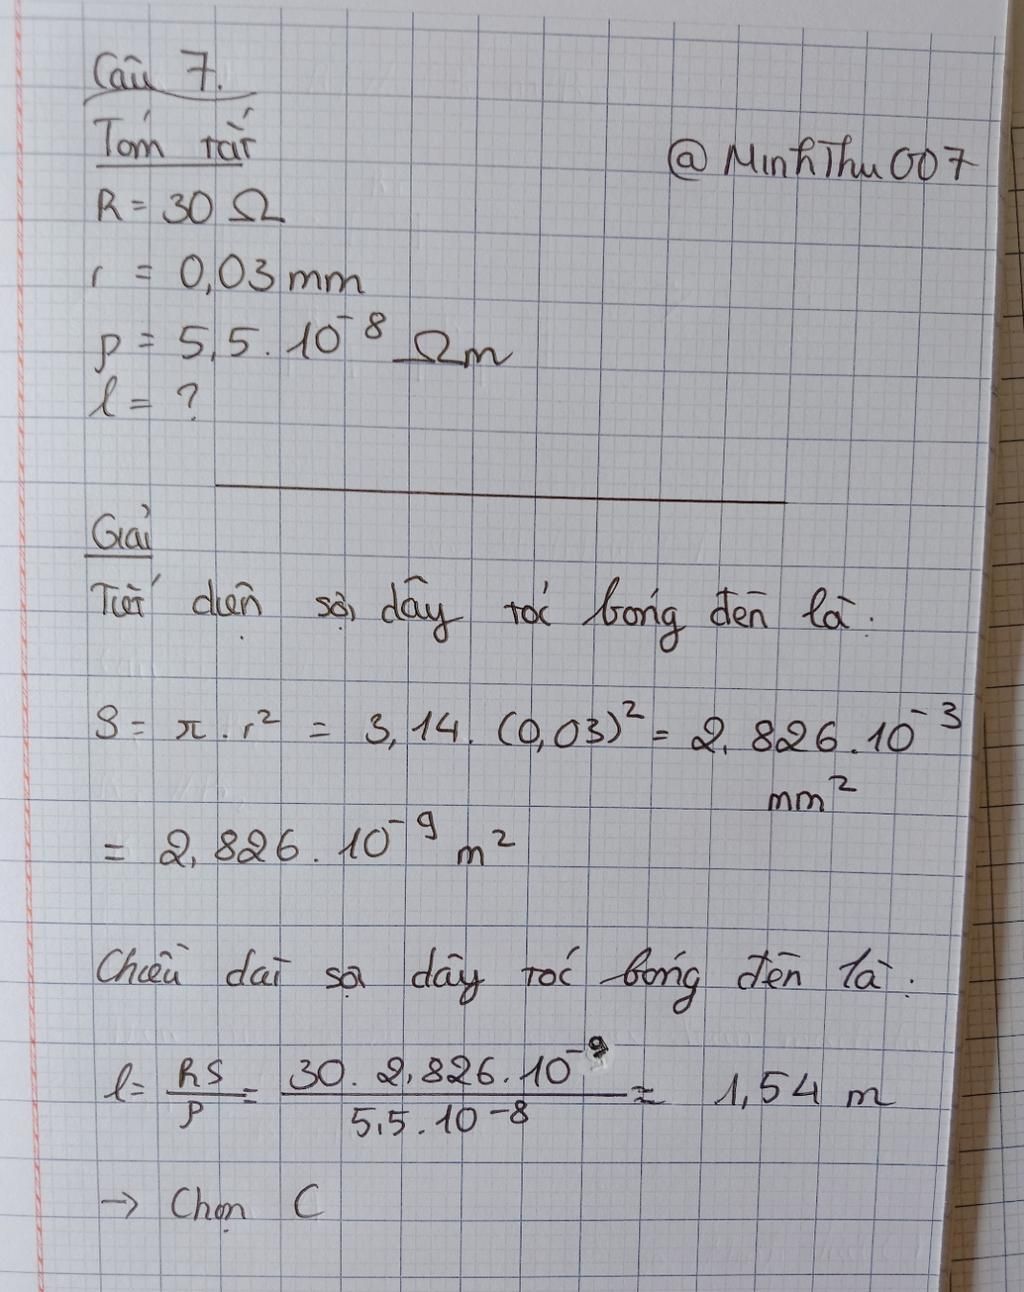 Câu 7.
Tóm tắt
@MinhThu007
R = 30 Ω
r = 0,03 mm
ρ = 5,5. 10⁻⁸ Ωm
l = ?
Giải
Tiết diện sợi dây tóc bóng đèn là:
S = π . r² = 3,14. (0,03)² = 2,826.10⁻³
mm²
= 2,826. 10⁻⁹ m²
Chiều dài sợi dây tóc bóng đèn là:
l = RS/ρ = 30. 2,826. 10⁻⁹ / 5,5. 10⁻⁸ ≈ 1,54 m
→ Chọn C